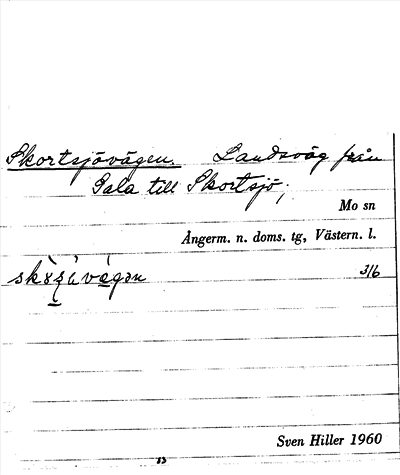 Skortsjövägen. Landsväg från
Sala till Skortsjö;
Mo sn
Ångerm. n. doms. tg, Västern. l.
3/6
Sven Hiller 1960